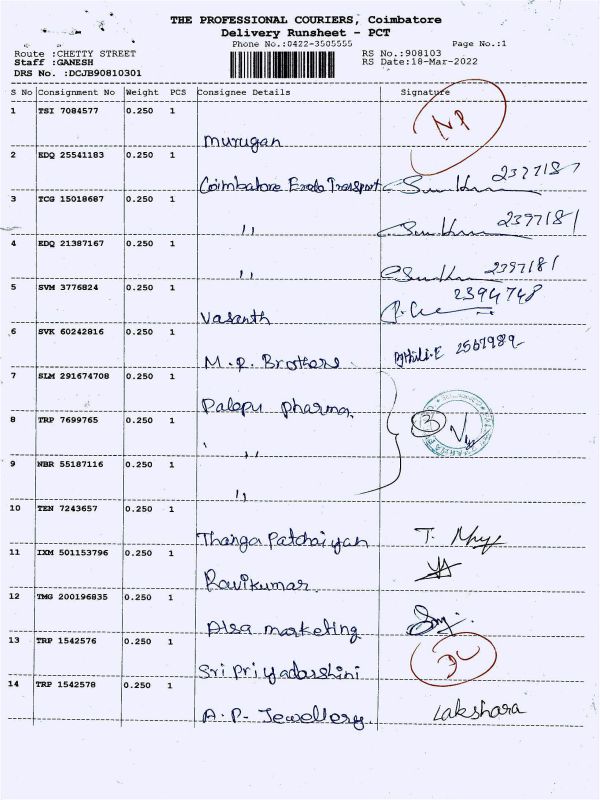 THE PROFESSIONAL COURIERS, Coimbatore
Delivery Runsheet - PCT
Phone No.:0422-3505555 Page No.:1
Route :CHETTY STREET RS No.:908103
Staff :GANESH RS Date:18-Mar-2022
DRS No. :DCJB90810301
S No Consignment No Weight PCS Consignee Details Signature
1 TSI 7084577 0.250 1
Murugan NP
2 EDQ 25541183 0.250 1
Coimbatore Erode Transport
3 TCG 15018687 0.250 1
,, 2397181
4 EDQ 21387167 0.250 1
,, 2397181
5 SVM 3776824 0.250 1 2394748
Vasanth
6 SVK 60242816 0.250 1
M.P. Brothers 2567989
7 SLM 291674708 0.250 1
Palepu pharma
8 TRP 7699765 0.250 1
,,
9 NBR 55187116 0.250 1
,,
10 TEN 7243657 0.250 1
Thanga Patchaiyan
11 IXM 501153796 0.250 1
Ravikumar
12 TMG 200196835 0.250 1
Alsa marketing
13 TRP 1542576 0.250 1
Sri Priyadarshini DL
14 TRP 1542578 0.250 1
A.P. Jewellery. Lakshara